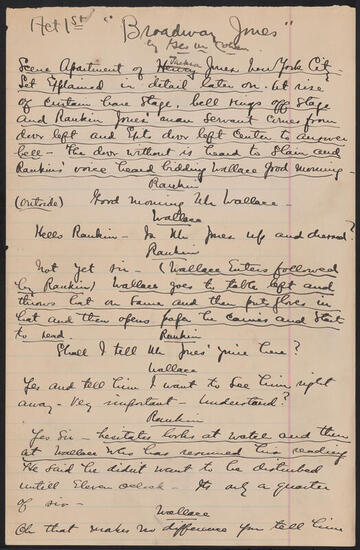 Act 1st "Broadway Jones"
by Geo M Cohan.
Jackson
Scene Apartment of Henry Jones New York City-
Set Explained in detail later on. At rise
of Curtain bare Stage, bell rings off Stage
and Rankin Jones' man Servant Comes from
door left and Exits door left Center to answer
bell - The door without is heard to Slam and
Rankins' voice heard bidding Wallace Good Morning -
Rankin
(outside) Good Morning Mr Wallace -
Wallace
Hello Rankin - Is Mr Jones up and dressed?
Rankin
Not yet sir - (Wallace Enters followed
by Rankin) Wallace goes to table left and
throws hat on Same and then puts gloves in
hat and then opens paper he carries and Starts
to read.
Rankin
Shall I tell Mr Jones' you're here?
Wallace
Yes and tell him I want to See him right
away - Very important - Understand?
Rankin
Yes Sir - hesitates looks at watch and then
at Wallace who has resumed his reading
He Said he didn't want to be disturbed
untill Eleven oclock - Its only a quarter
of sir -
Wallace
Oh that makes no difference you tell him